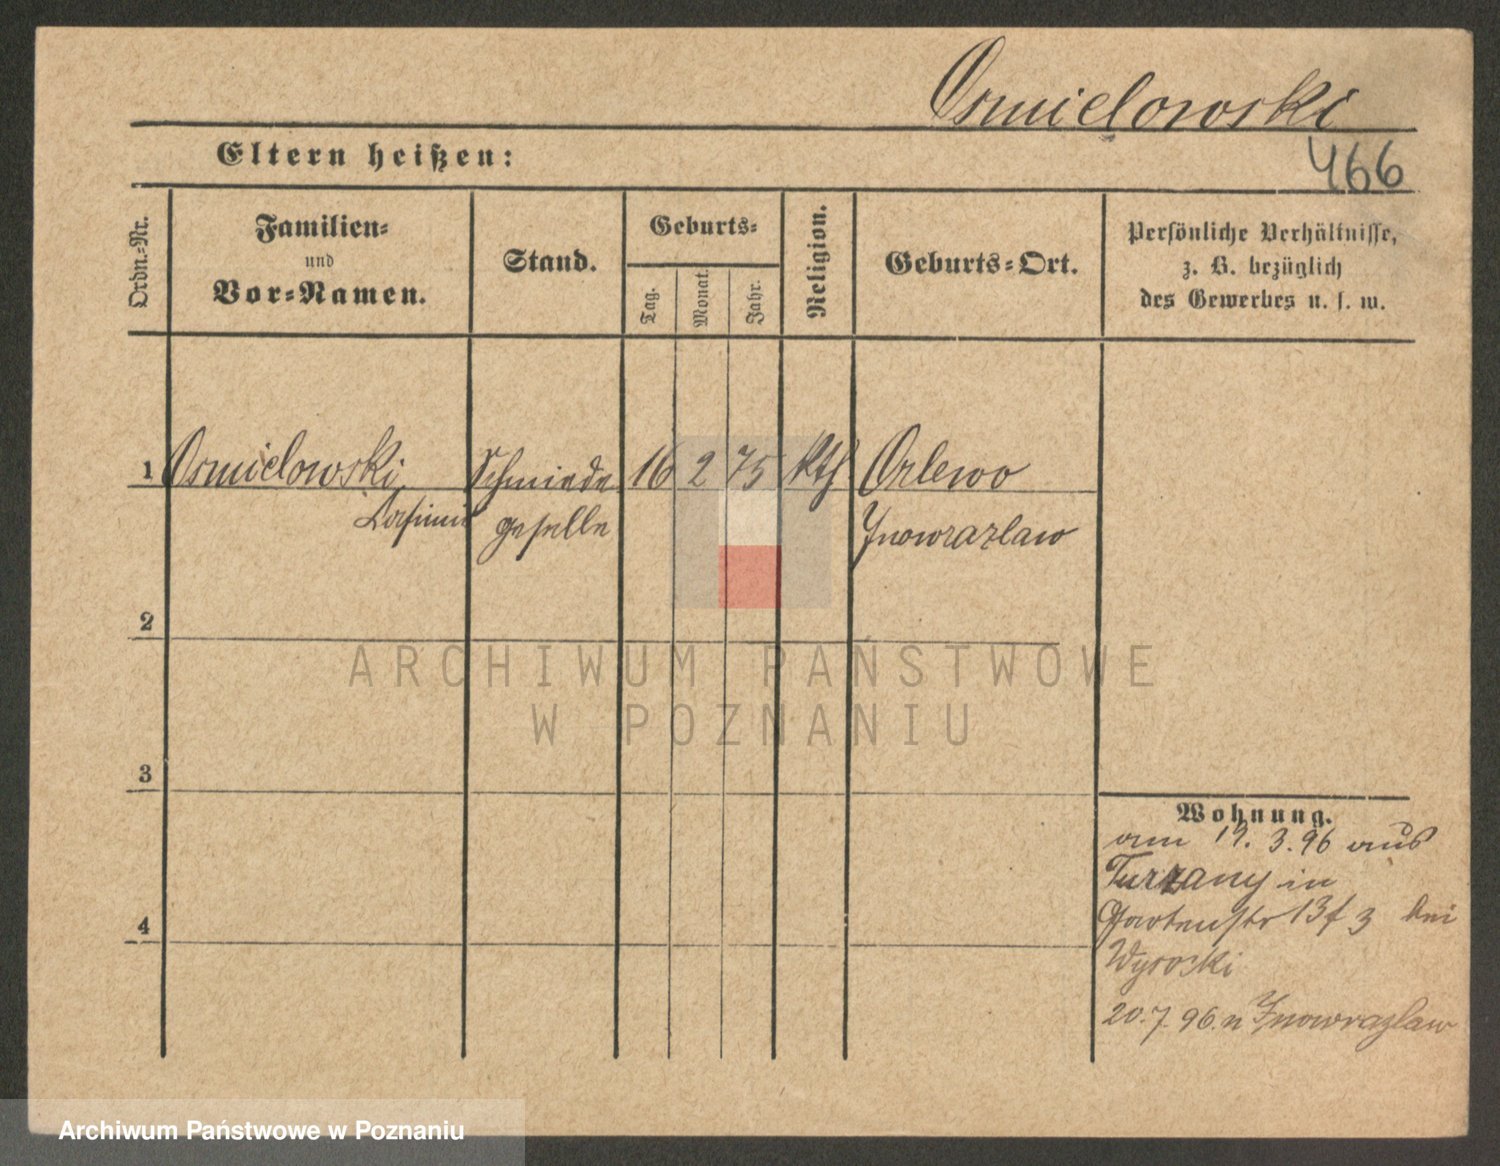 Osmielowski
466
Eltern heißen:
Ordn.-Nr.
Familien-
und
Vor-Namen.
Stand.
Geburts-
Tag.
Monat.
Jahr.
Religion.
Geburts-Ort.
Persönliche Verhältnisse,
z. B. bezüglich
des Gewerbes u. s. w.
1 Osmielowski Schmiede 16 2 75 kth Orlewo
geselle Inowrazlaw
2
ARCHIWUM PAŃSTWOWE
W POZNANIU
3
Wohnung.
am 19. 3. 96 aus
Turzany in
Gartenstr 13 f 3 bei
4
Wysocki
20. 7. 96. n Inowrazlaw
Archiwum Państwowe w Poznaniu